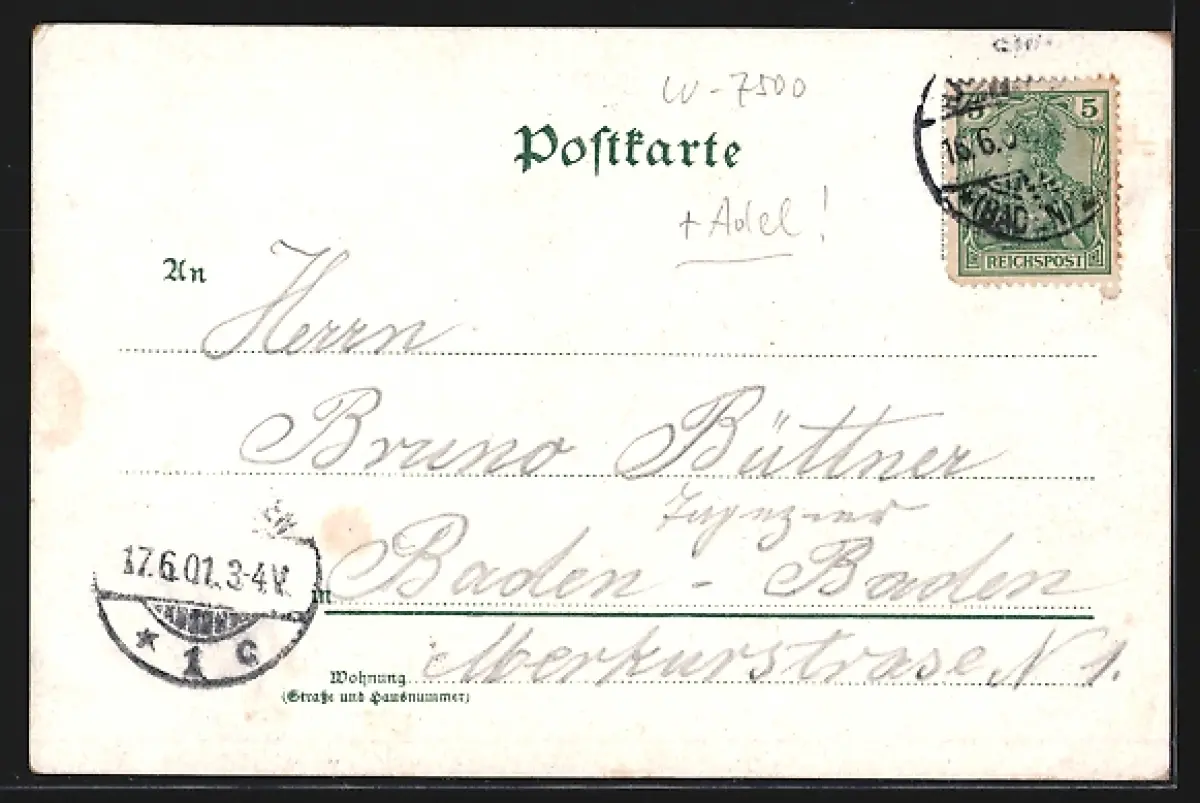 W-7500
Postkarte
+ Adel!
5 5
16.6.0
(BADEN)
REICHSPOST
An
Herrn
Bruno Büttner
in Baden-Baden
Merkurstrase N 1.
Wohnung
(Straße und Hausnummer)
17.6.01. 3-4V.
* 1 c